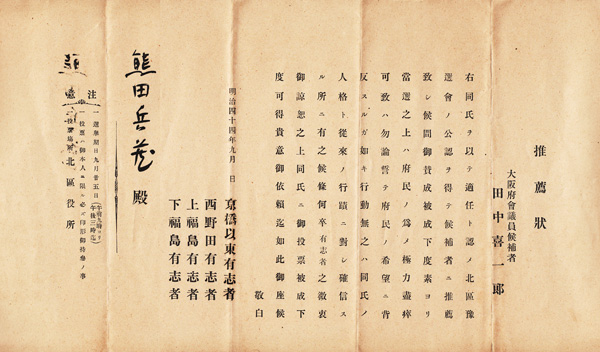 推薦狀
大阪府會議員候補者
田中喜一郎
右同氏ヲ以テ適任ト認メ北區豫
選會ノ公認ヲ得テ候補者ニ推薦
致シ候間御賛成被成下度素ヨリ
當選之上ハ府民ノ爲メ極力盡瘁
可致ハ勿論誓テ府民ノ希望ニ背
反スルガ如キ行動無之ハ同氏ノ
人格ト從來ノ行蹟ニ對シ確信ス
ル所ニ有之候條何卒有志者之微衷
御諒恕之上同氏ニ御投票被成下
度可得貴意御依頼迄如此御座候
敬白
明治四十四年九月 日
以東有志者
西野田有志者
上福島有志者
下福島有志者
熊田兵 殿
注意
一選擧期日九月廿五日(午前 時ヨリ 午後三時迄)
一投票ハ御本人ニ限ル必ズ印形御持參ノ事
一投票場所北區役所